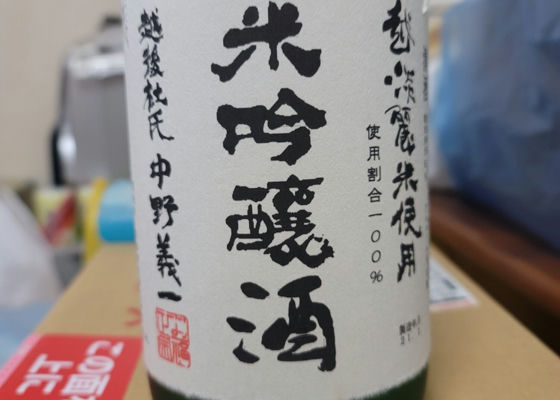 越淡麗米使用
使用割合一〇〇%
米吟醸酒
越後杜氏 中野義一
この面
上に